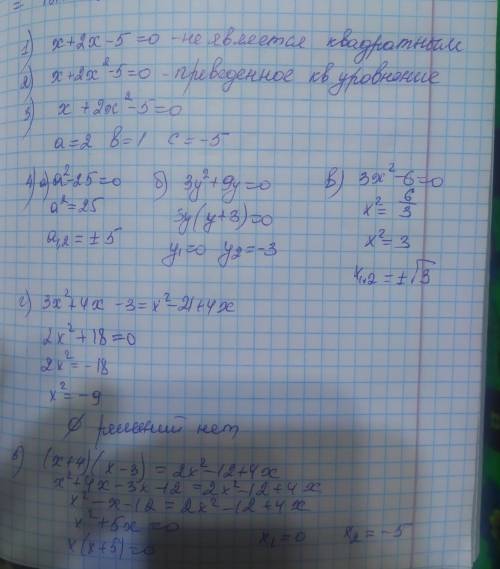 1) x+2x-5=0 -не является квадратным
2) x+2x²-5=0 - преведенное кв. уровнение
3) x+2x²-5=0
a=2 b=1 c=-5
4) а) a²-25=0 б) 3y²+9y=0 в) 3x²-6=0
a²=25 3y(y+3)=0 x²=6/3
a₁,₂=±5 y₁=0 y₂=-3 x²=3
x₁,₂=±√3
г) 3x²+4x-3=x²-21+4x
2x²+18=0
2x²=-18
x²=-9
∅ решений нет
(x+4)(x-3)=2x²-12+4x
x²+4x-3x-12=2x²-12+4x
x²-x-12=2x²-12+4x
x²+5x=0
x(x+5)=0 x₁=0 x₂=-5